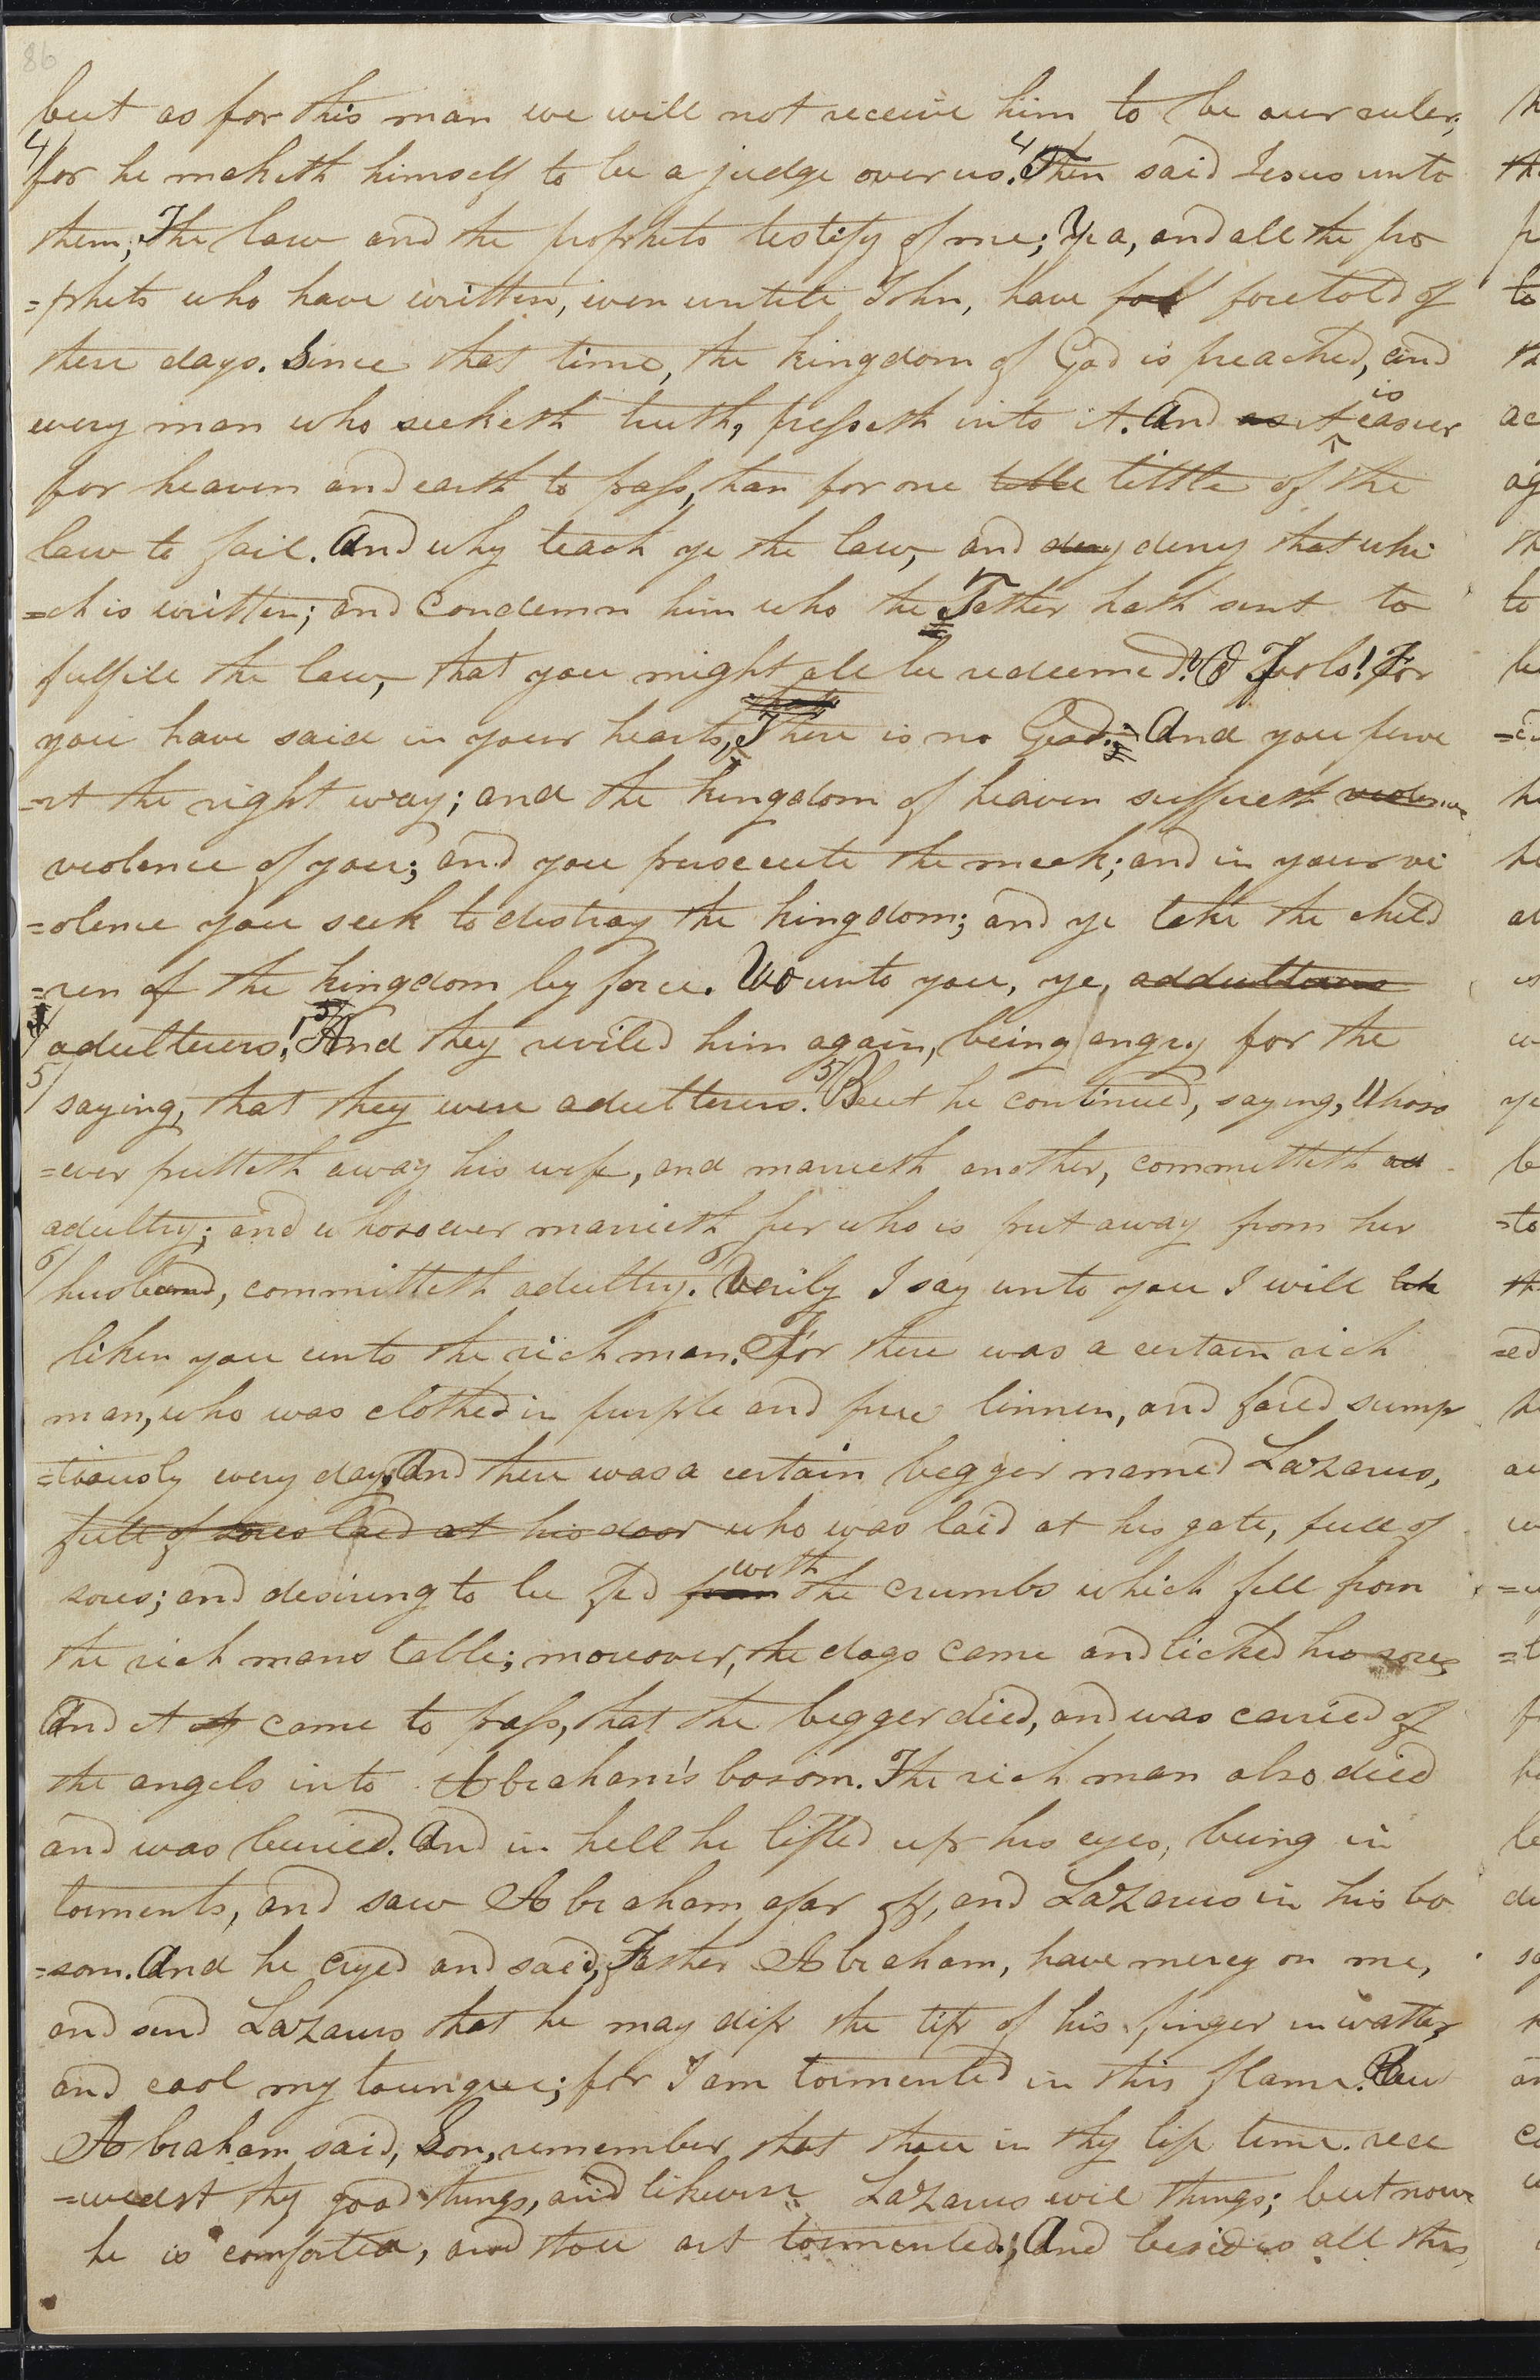 86
but as for this man we will not receive him to be our ruler;
4/ for he maketh himself to be a judge over us. 4/ Then said Jesus unto
them; The law and the prophets testify of me; Yea, and all the pro
=phets who have written, even untill John, have foretold of
these days. Since that time, the kingdom of God is preached, and
every man who seeketh truth, presseth into it. And as it is easier
for heaven and earth to pass, than for one title tittle of the
law to fail. And why teach ye the law, and deny that whi
=ch is written; and condemn him who the Father hath sent to
fulfill the law, that you might all be redeemed? O Fools! For
you have said in your hearts, There is no God. And you perve
=rt the right way; and the kingdom of heaven suffereth violence
violence of you; and you persecute the meek; and in your vi
=olence you seek to destroy the kingdom; and ye take the child
=ren of the kingdom by force. Wo unto you, ye, addulterers
adulterers! 5/ And they reviled him again, being angry for the
5/ saying, that they were adulterers. 5/ But he continued, saying, Whoso
=ever putteth away his wife, and marrieth another, committeth ad
adultry; and whosoever marrieth her who is put away from her
6/ husband, committeth adultry. 6/ Verily I say unto you I will lik
liken you unto the rich man. For there was a certain rich
man, who was clothed in purple and fine linnen, and fared sump
=tiously every day; And there was a certain begger named Lazarus,
full of sores laid at his door who was laid at his gate, full of
sores; and desiring to be fed from with the crumbs which fell from
the rich mans table; moreover, the dogs came and licked his sores
And it came to pass, that the begger died, and was carried of
the angels into Abraham's bosom. The rich man also died
and was buried. And in hell he lifted up his eyes, being in
torments, and saw Abraham afar off, and Lazarus in his bo
=som. And he cryed and said, Father Abraham, have mercy on me,
and send Lazarus that he may dip the tip of his finger in watter
and cool my toungue; for I am tormented in this flame. But
Abraham said, Son, remember that thou in thy life time rece
=ivedst thy good things, and likewise Lazarus evil things; but now
he is comforted, and thou art tormented; And besides all this,